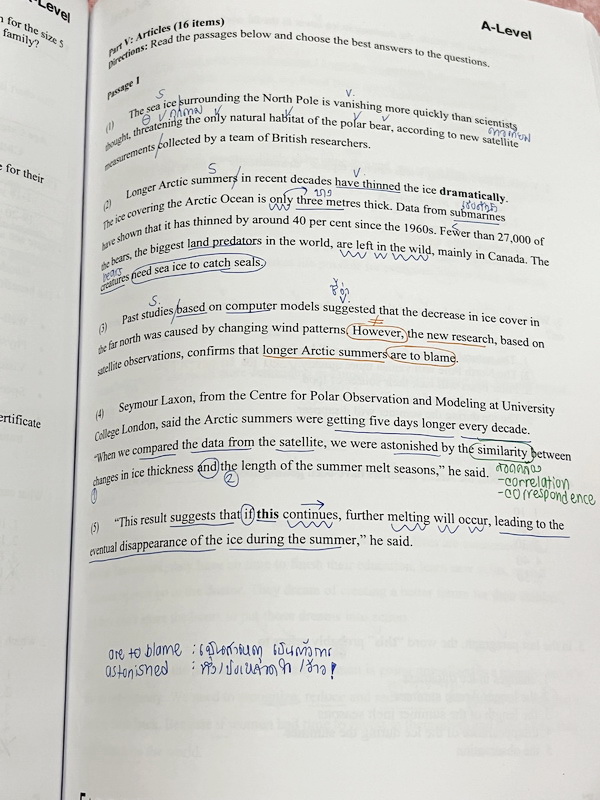 A-Level
-Level
n for the size 5
family?
e for their
ertificate
Part V: Articles (16 items)
Directions: Read the passages below and choose the best answers to the questions.
Passage 1
S V.
(1) The sea ice surrounding the North Pole is vanishing more quickly than scientists
คุกคาม V V V ดาวเทียม
thought, threatening the only natural habitat of the polar bear, according to new satellite
measurements collected by a team of British researchers.
S V.
(2) Longer Arctic summers in recent decades have thinned the ice dramatically.
บาง เรือดำน้ำ
The ice covering the Arctic Ocean is only three metres thick. Data from submarines
have shown that it has thinned by around 40 per cent since the 1960s. Fewer than 27,000 of
the bears, the biggest land predators in the world, are left in the wild, mainly in Canada. The
bears
creatures need sea ice to catch seals.
S. ชี้ว่า V.
(3) Past studies based on computer models suggested that the decrease in ice cover in
≠
the far north was caused by changing wind patterns. However, the new research, based on
satellite observations, confirms that longer Arctic summers are to blame.
(4) Seymour Laxon, from the Centre for Polar Observation and Modeling at University
College London, said the Arctic summers were getting five days longer every decade.
"When we compared the data from the satellite, we were astonished by the similarity between
changes in ice thickness and the length of the summer melt seasons," he said.
① ②
สอดคล้อง
-correlation
-correspondence
(5) "This result suggests that if this continues, further melting will occur, leading to the
eventual disappearance of the ice during the summer," he said.
are to blame : เป็นสาเหตุ เป็นตัวการ
astonished :